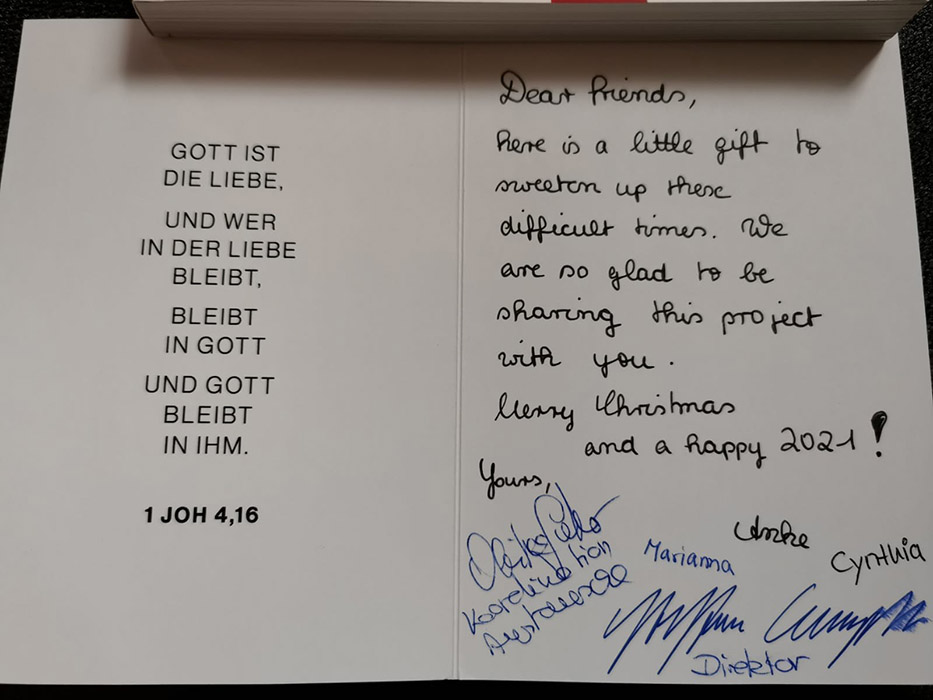 GOTT IST
DIE LIEBE,
UND WER
IN DER LIEBE
BLEIBT,
BLEIBT
IN GOTT
UND GOTT
BLEIBT
IN IHM.
1 JOH 4,16
Dear friends,
here is a little gift to
sweeten up these
difficult times. We
are so glad to be
sharing this project
with you.
Merry Christmas
and a happy 2021!
Yours,
Marianna
Cynthia
Koordination
Direktor